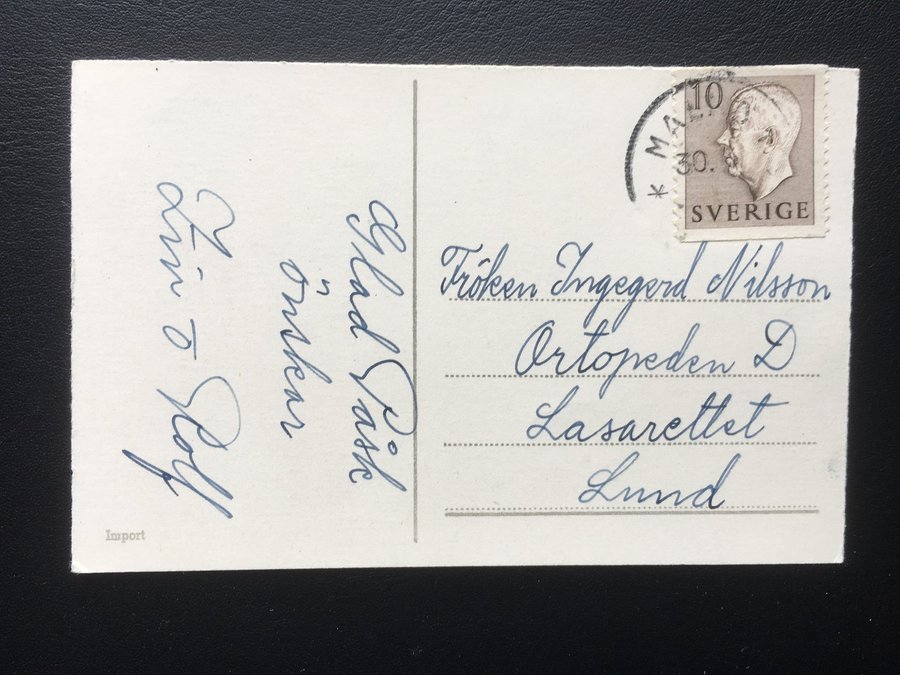 10
SVERIGE
30.
Glad Påsk
önskar
Fröken Ingegerd Nilsson
Ortopeden D
Lasarettet
Lund
Import